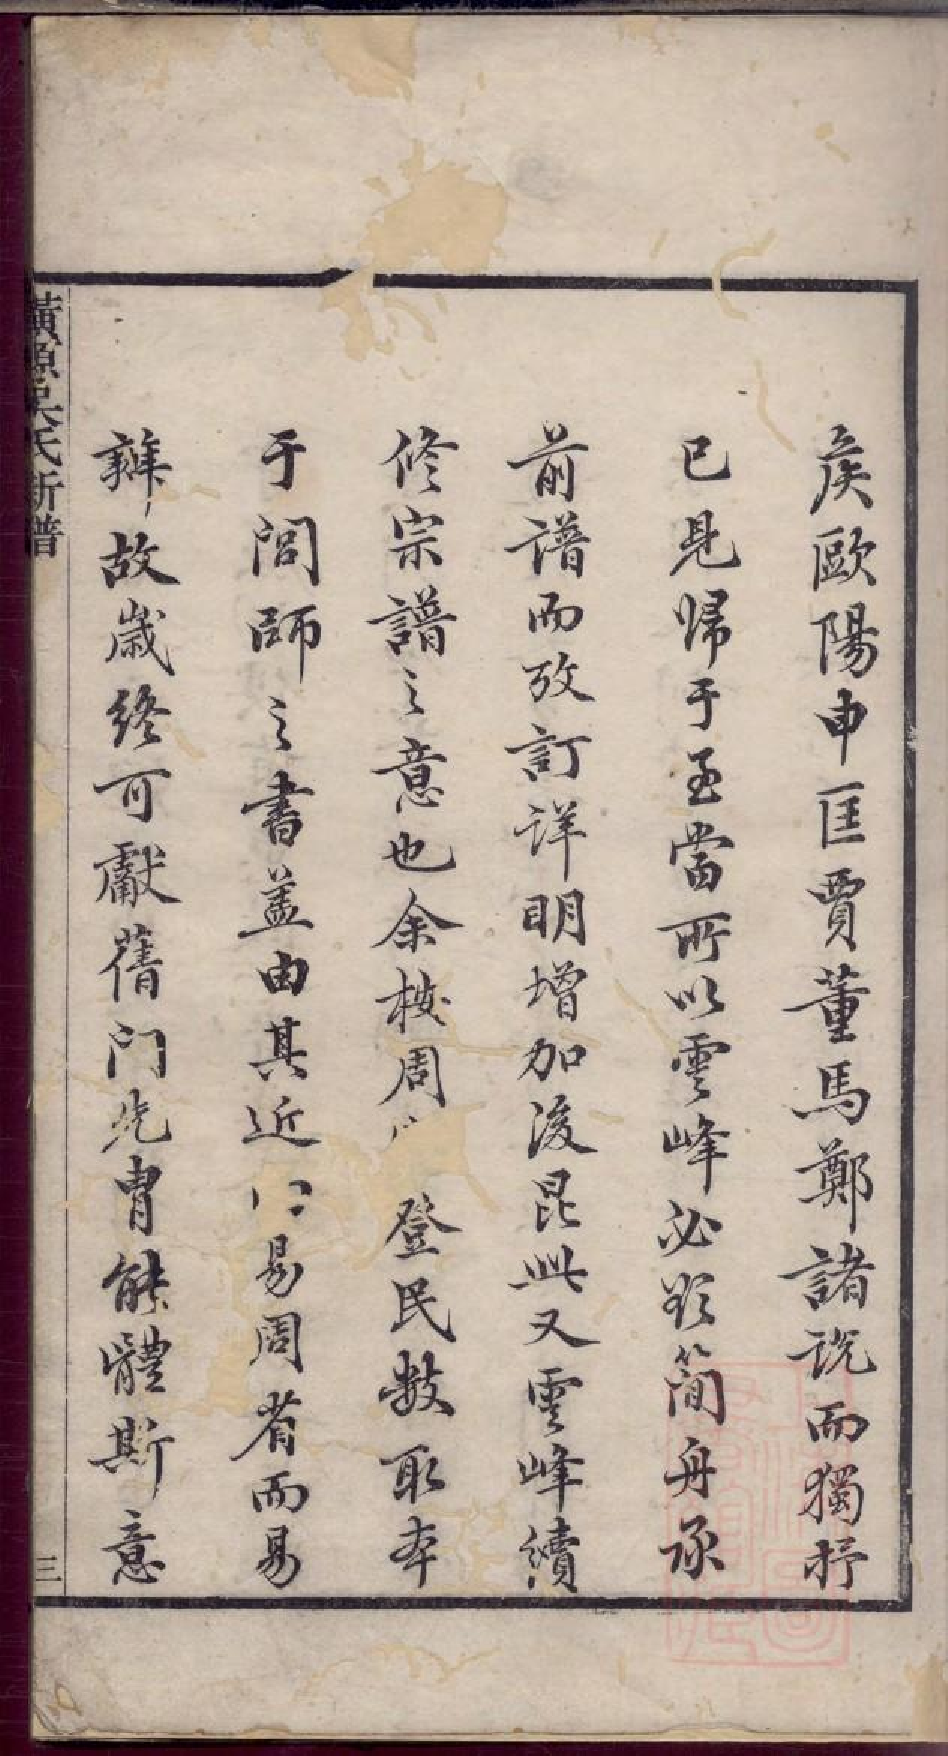 侯歐陽申匡賈董馬鄭諸説而獨抒
已見歸于至當所以雲峰必欵簡舟承
前譜而攷訂詳明增加後昆此又雲峰續
修宗譜之意也余按周 登民數取本
于閭師之書盖由其近 易周者而易
辦故歲終可獻蒨門先冑能體斯意
黃源吳氏新譜
三